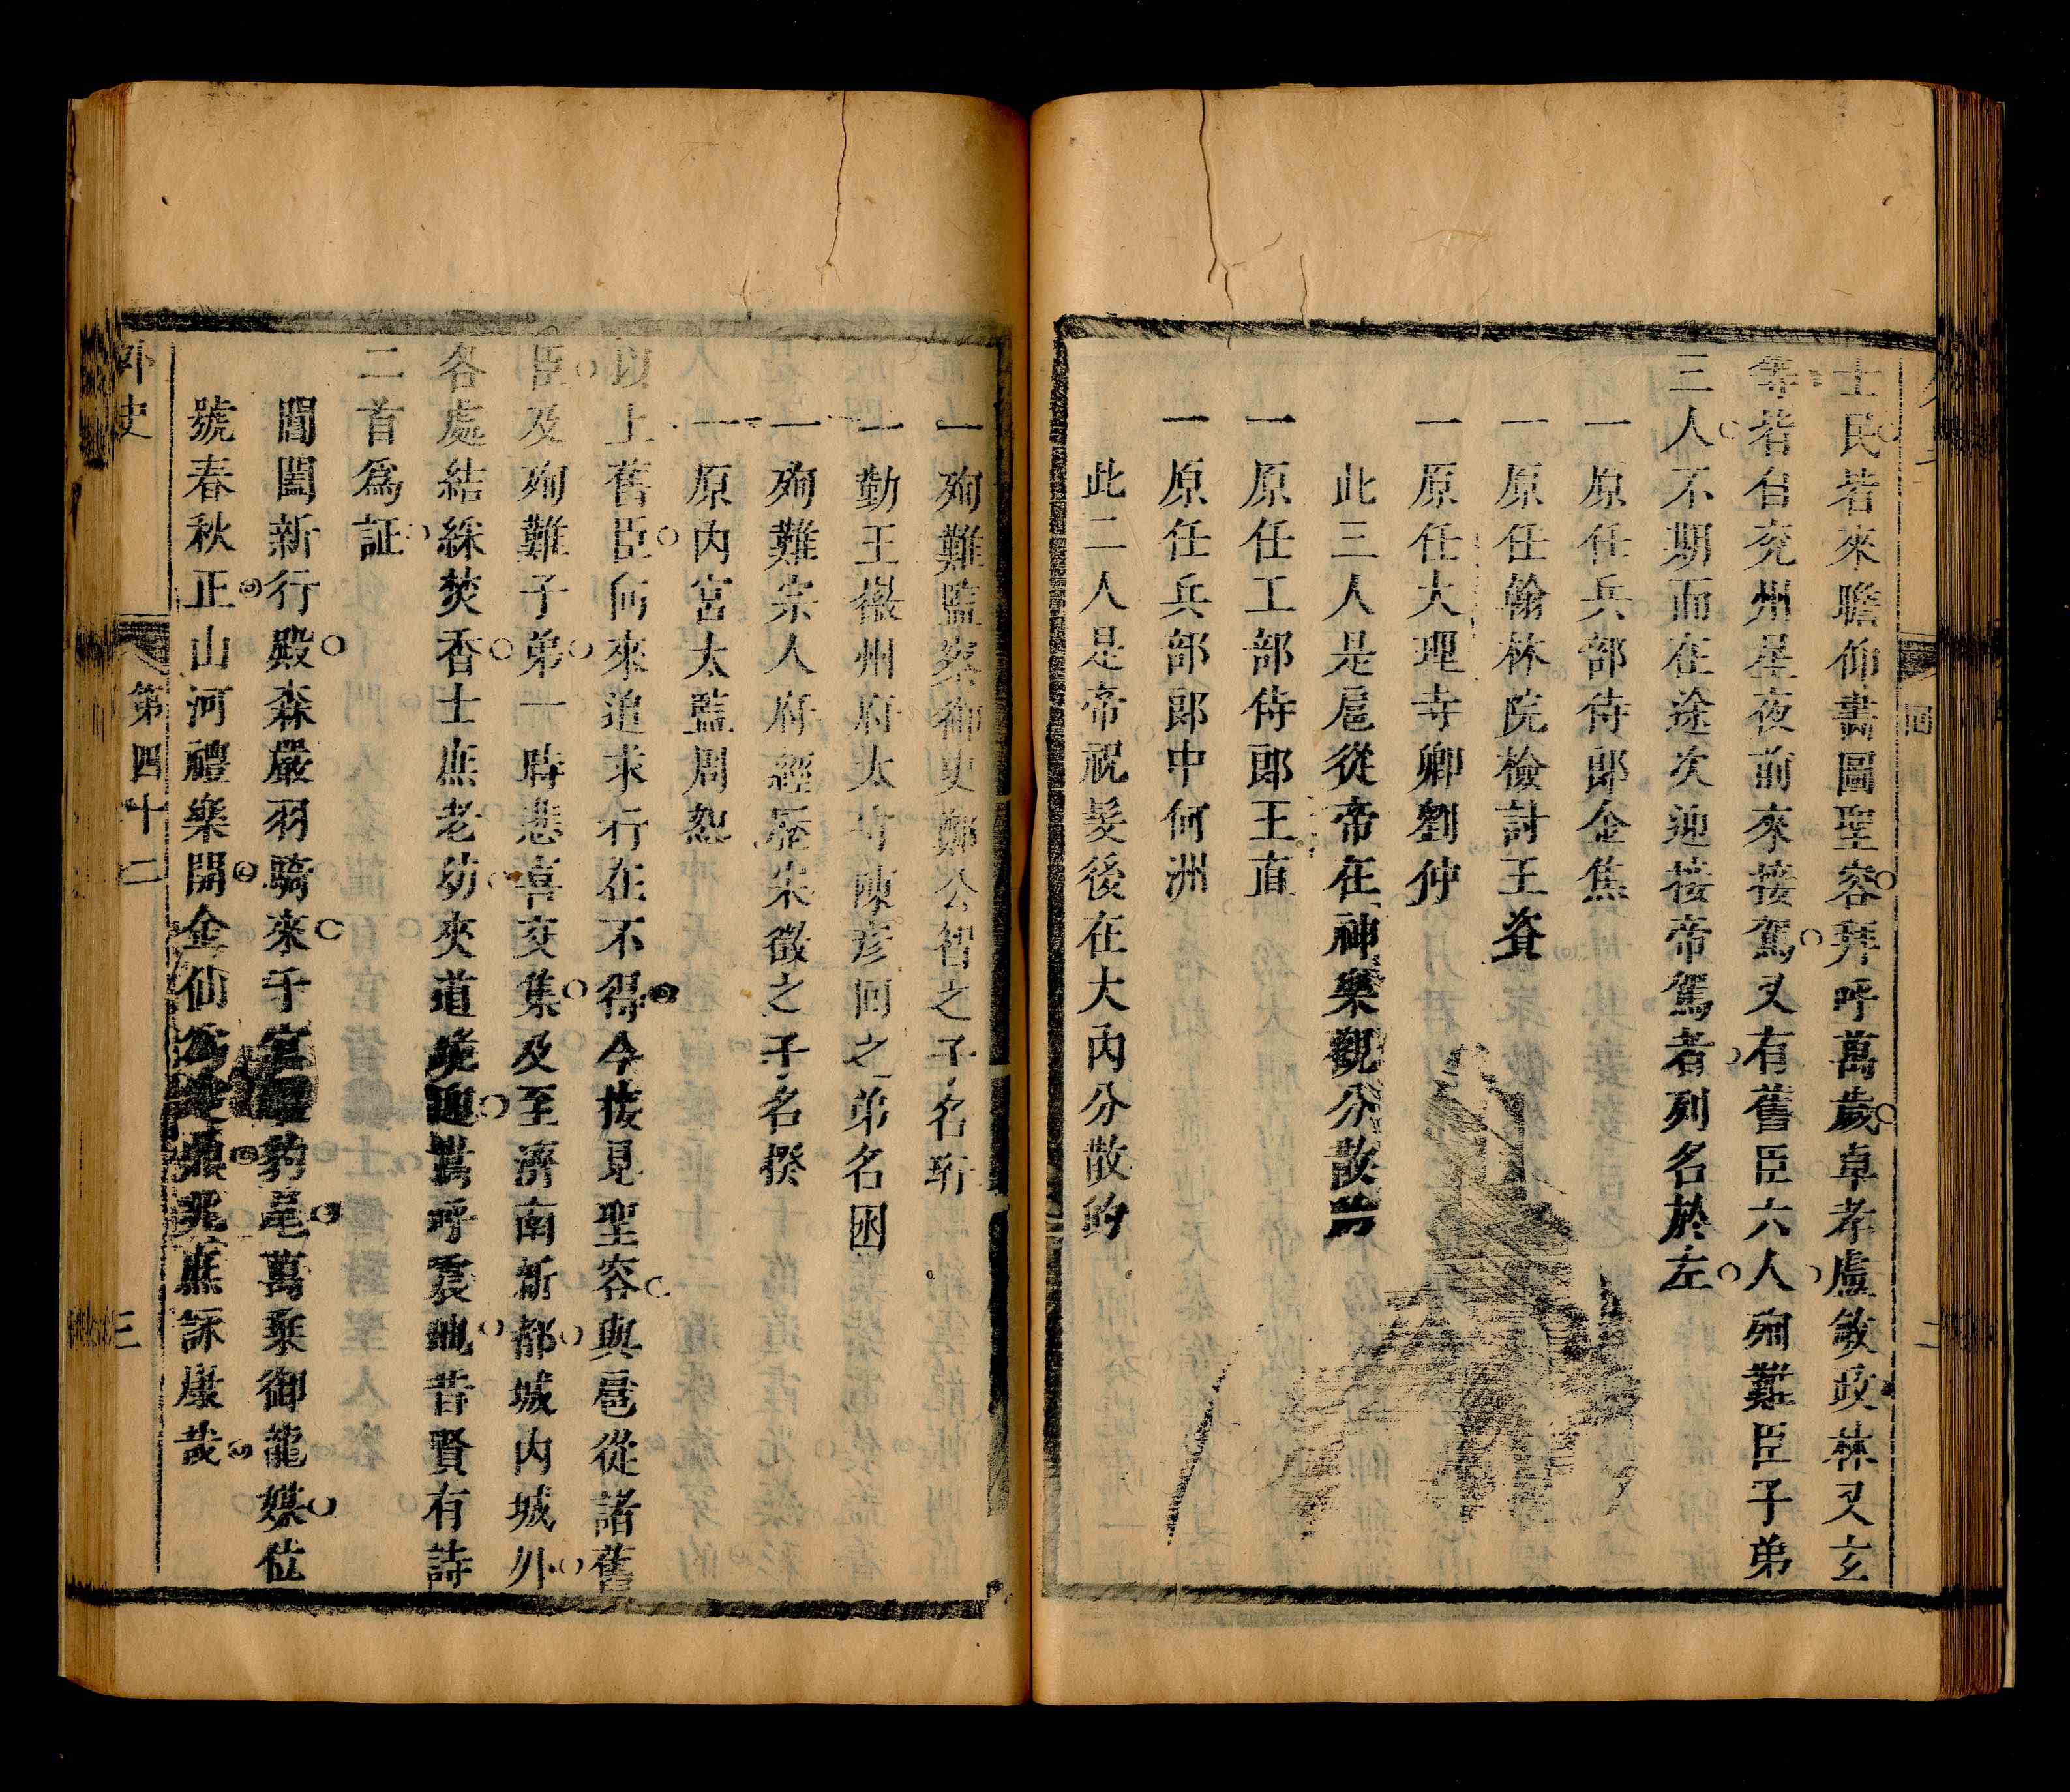 士民若來瞻仰畵圖聖容拜呼萬歲卓孝盧敏政林又玄
等若自兖州星夜前來接駕又有舊臣六人殉難臣子弟
三人不期而在途次迎接帝駕者列名於左
一原任兵部侍郎金焦
一原任翰林院檢討王資
一原任大理寺卿劉仲
此三人是扈從帝在神樂觀分散的
一原任工部侍郎王直
一原任兵部郎中何洲
此二人是帝祝髮後在大內分散的
一殉難監察御史鄭公智之子名珩
一勤王徽州府太守陳彦回之弟名困
一殉難宗人府經歷宋徵之子名揆
一原內宮太監周恕
以上舊臣向來追求行在不得今接見聖容與扈從諸舊
臣及殉難子弟一時悲喜交集及至濟南新都城內城外
各處結綵焚香士庶老幼夾道攙迎嵩呼震地昔賢有詩
二首爲証
閶闔新行殿森嚴羽騎來千官豹尾萬乗御龍媒位
號春秋正山河禮樂開金仙爲鼎兆庶詠康哉
外史
第四十二
三
回
二